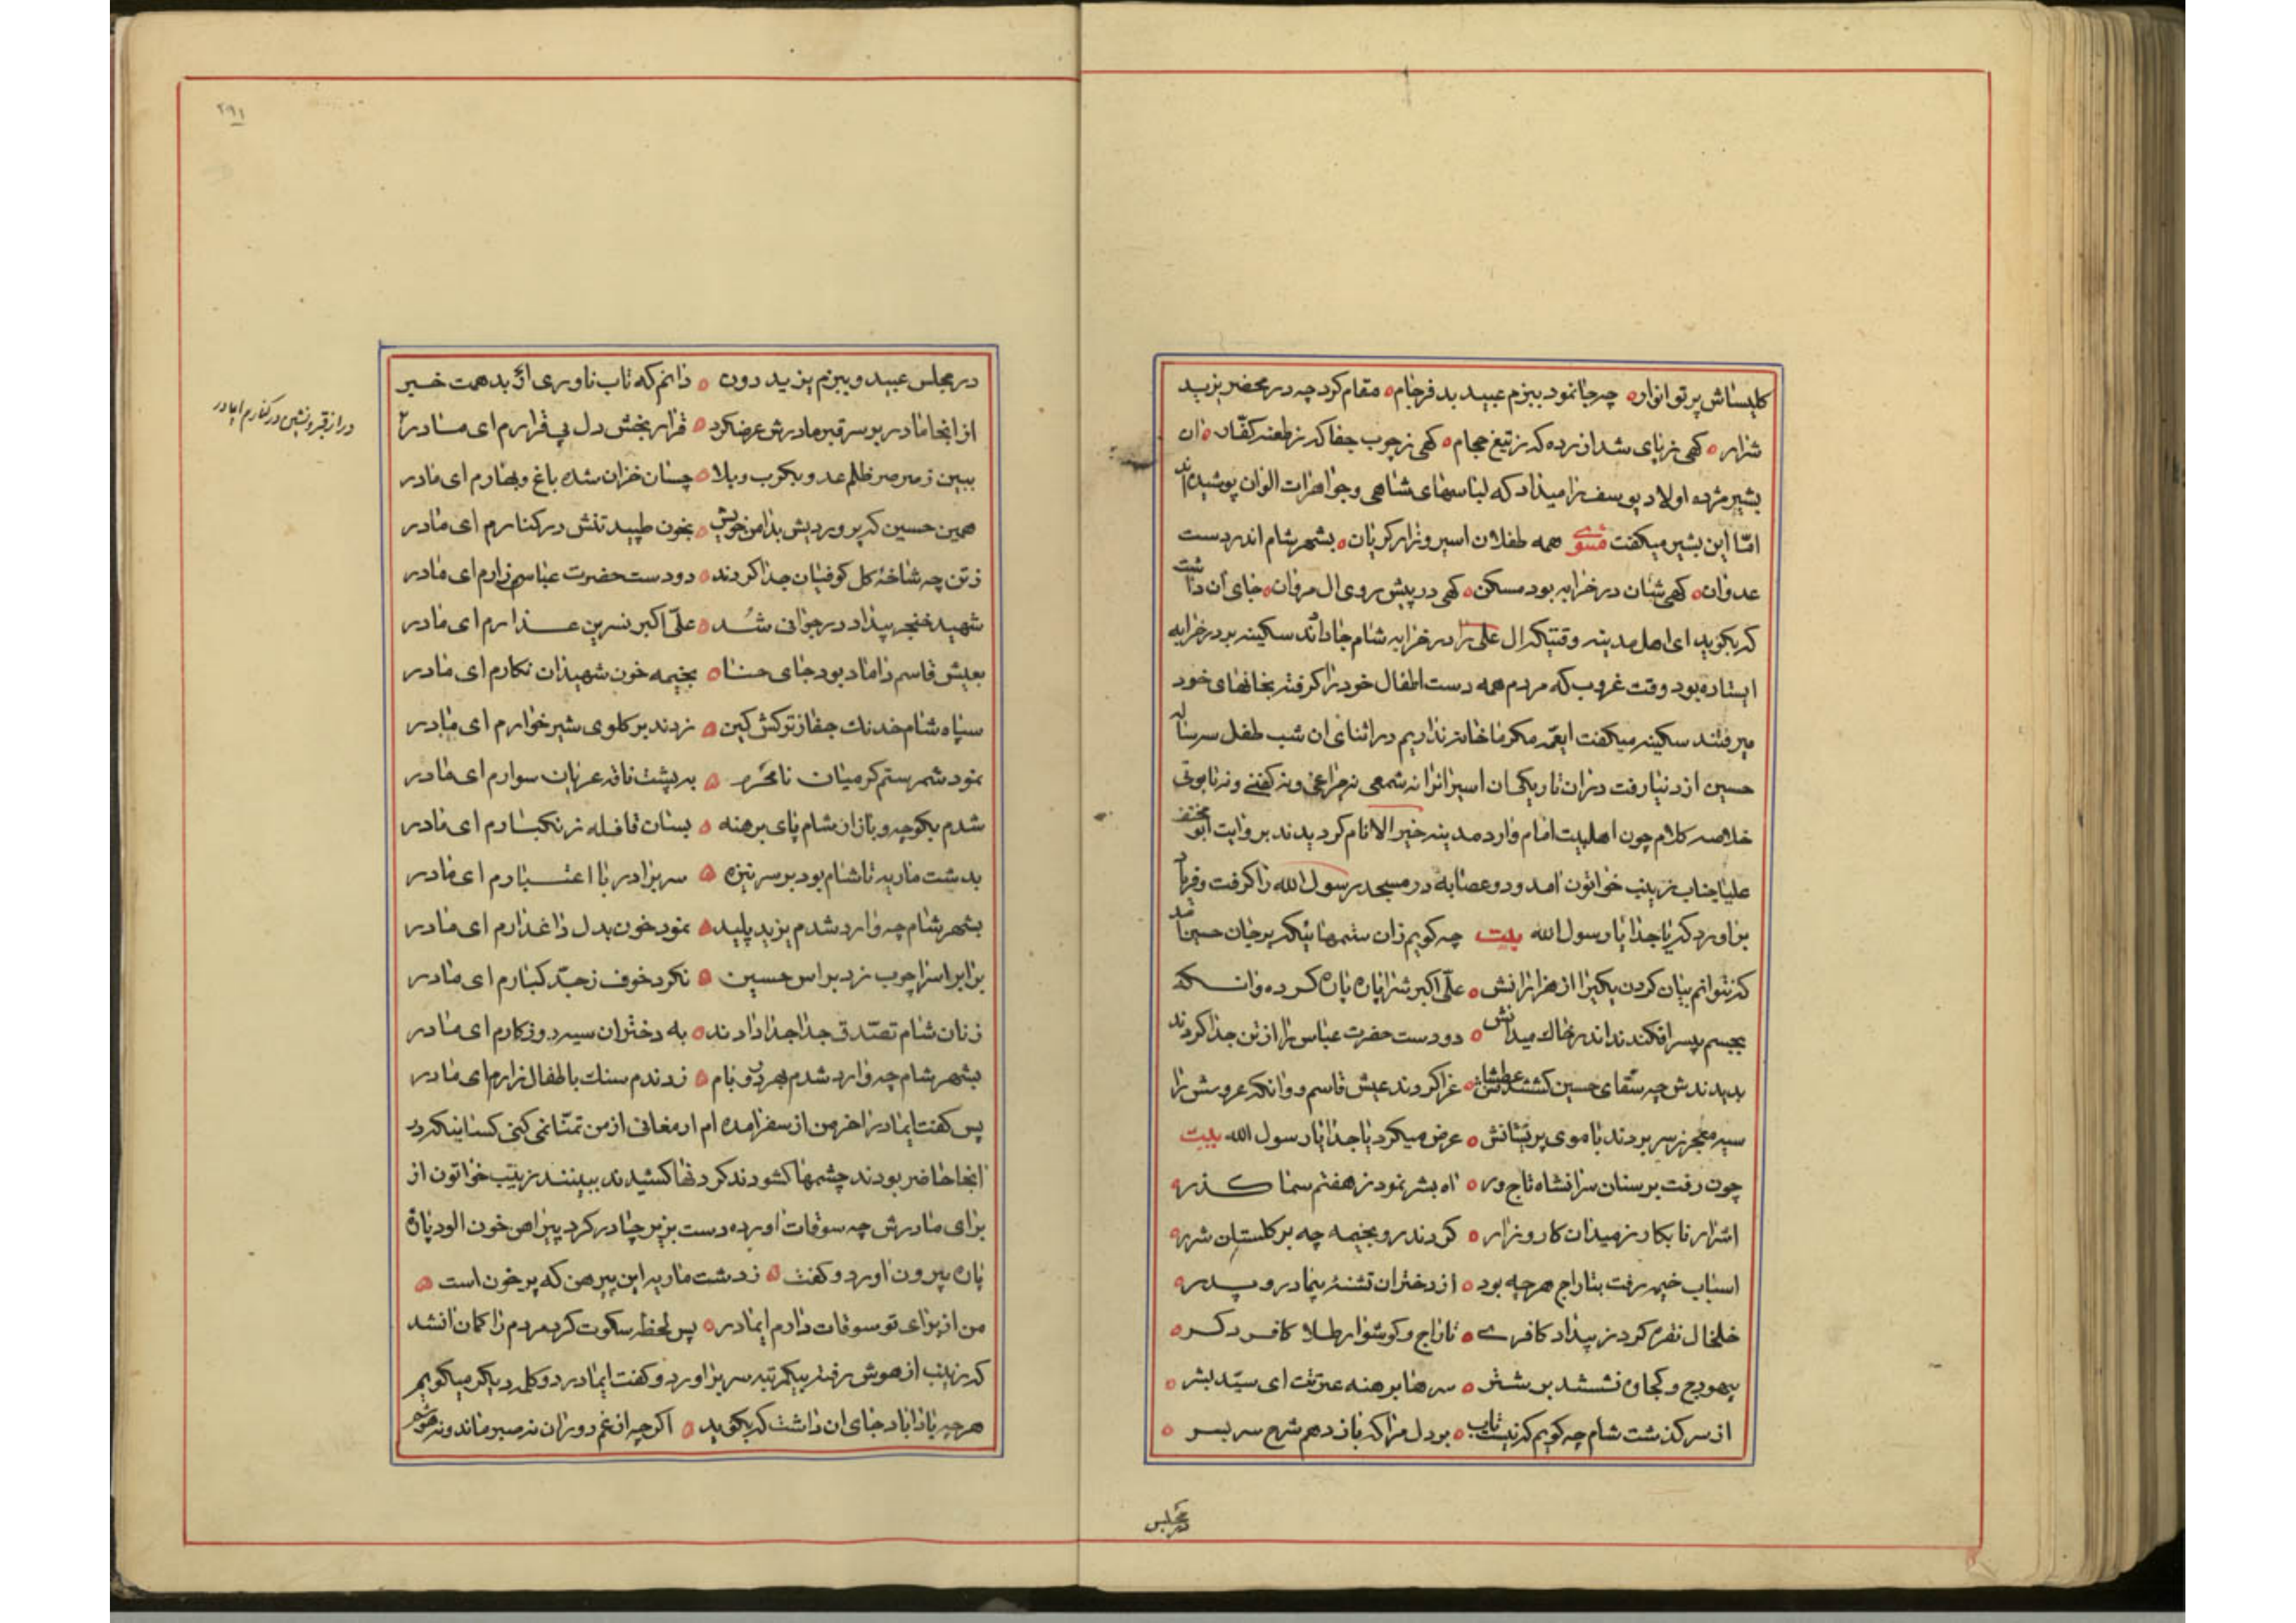 کلیساش پر تو انوار ه چه جا نمود ببزم عبید بد فرجام ه مقام کرد چه در محضر یزید
شرار ه کهی ز پای شد ازرده که ز تیغ حجام ه کهی ز چوب جفا که ز طعنه کفّار ه ان
بشیر مژده اولاد یوسف را میداد که لباسهای شاهی و جواهرات الوان پوشیده‌اند
امّا این بشیر میکفت مثنوی همه طفلان اسیر و زار کریان ه بشهر شام اندر دست
عدوان ه کهی شان در خرابه بود مسکن ه کهی در پیش روی ال مروان ه جای آن داشت
که بکوید ای اهل مدینه وقتیکه ال علی را در خرابه شام جا دادند سکینه بر در خرابه
ایستاده بود وقت غروب که مردم همه دست اطفال خود را کرفته بخانهای خود
میرفتند سکینه میکفت ایعمّه مکر ما خانه نداریم در اثنای ان شب طفل سه ساله
حسین از دنیا رفت در ان تاریکی ان اسیرانرا نه شمعی نه چراغی و نه کفنی و نه تابوتی
خلاصه کلام چون اهلبیت امام وارد مدینه خیر الانام کردیدند بروایت ابو مخنف
علیا جناب زینب خواتون امد و دو عضابه در مسجد رسول الله را کرفت و فریاد
براورد که یا جدا یا رسول الله بیت چه کویم زان ستمهائیکه بر جان حسین امد
که نتوانم بیان کردن یکیرا از هزارانش ه علّی اکبرش را پاره پاره کرده وانکه
بجسم بیسر افکندند اندر خاک میدانش ه دو دست حضرت عباس را از تن جدا کردند
بدیدندش چه سقّای حسین کشتند عطشانش ه عزا کردند عیش قاسم و وانکه عروسش را
سیه معجر ز سر بردند با موی پریشانش ه عرض میکرد یا جدا یا رسول الله بیت
چون رفت بر سنان سر انشاه تاج ور ه اه بشر نمود ز هفتم سما کذر ه
اشرار نابکار ز میدان کارزار ه کردند رو بخیمه چه بر کلستان شرر ه
اسباب خیمه رفت بتاراج هر چه بود ه از دختران تشنه بیمادر و پدر ه
خلخال نقره کرد ز بیداد کافرے ه تاراج و کوشوار طلا کافر دکر ه
بیهودج و کجاوه نشستند بر شتر ه سرها برهنه عترتت ای سیّد بشر ه
از سر کذشت شام چه کویم که نیست تاب ه بر دل مرا که باز دهم شرح سر بسر ه
در مجلس
۲۹۱
در مجلس عبید و ببزم یزید دون ه دانم که تاب ناوری ای بدهمت خبیر
از انجا مادر بر سر قبر مادرش عرضکرد ه قرار بخش دل بی قرارم ای مادر
در از قبر و نشین در کنارم ایمادر
ببین ز صرصر ظلم عدو بکرب و بلا ه چسان خزان شده باغ و بهارم ای مادر
همین حسین که پروردیش بدامن خویش ه بخون طپید تنش در کنارم ای مادر
ز تن چه شاخهٔ کل کوفیان جدا کردند ه دو دست حضرت عباس زارم ای مادر
شهید خنجر بیداد در جوانی شُد ه علّی اکبر نسرین عذارم ای مادر
بعیش قاسم داماد بود جای حنا ه بخیمه خون شهیدان نکارم ای مادر
سپاه شام خدنک جفا ز ترکش کین ه زدند بر کلوی شیر خوارم ای مادر
نمود شمر ستم کر میان نامحرم ه به پشت ناقه عریان سوارم ای مادر
شدم بکوچه و بازار شام پای برهنه ه بسان قافله زنکبارم ای مادر
بدشت ماریه تا شام بود بر سر نیزه ه سر برادر با اعتبارم ای مادر
بشهر شام چه وارد شدم یزید پلید ه نمود خون بدل داغدارم ای مادر
برابر اسرا چوب زد براس حسین ه نکرد خوف ز جدّ کبارم ای مادر
زنان شام تصّدق جدا جدا دادند ه به دختران سیه روزکارم ای مادر
بشهر شام چه وارد شدم بهر در و بام ه زدندم سنک باطفال زارم ای مادر
پس کفت ایمادر اخر من از سفر امده ام ارمغانی از من تمنّا نمی کنی کسانیکه در
انجا حاضر بودند چشمها کشودند کردنها کشیدند ببینند زینب خواتون از
برای مادرش چه سوقات اورده دست بزیر چادر کرد پیراهن خون الود پاره
پاره بیرون اورد و کفت ه ز دشت ماریه این پیرهن که پر خون است ه
من از برای تو سوقات دارم ایمادر ه پس لحظه سکوت کرد مردم را کمان انشد
که زینب از هوش رفته بیکمرتبه سر براورد و کفت ایمادر دو کلمه دیکر میکویم
هر چه بادا باد جای ان داشت که بکوید ه اکر چه از غم دوران نه صبر ماند و نه هوشم